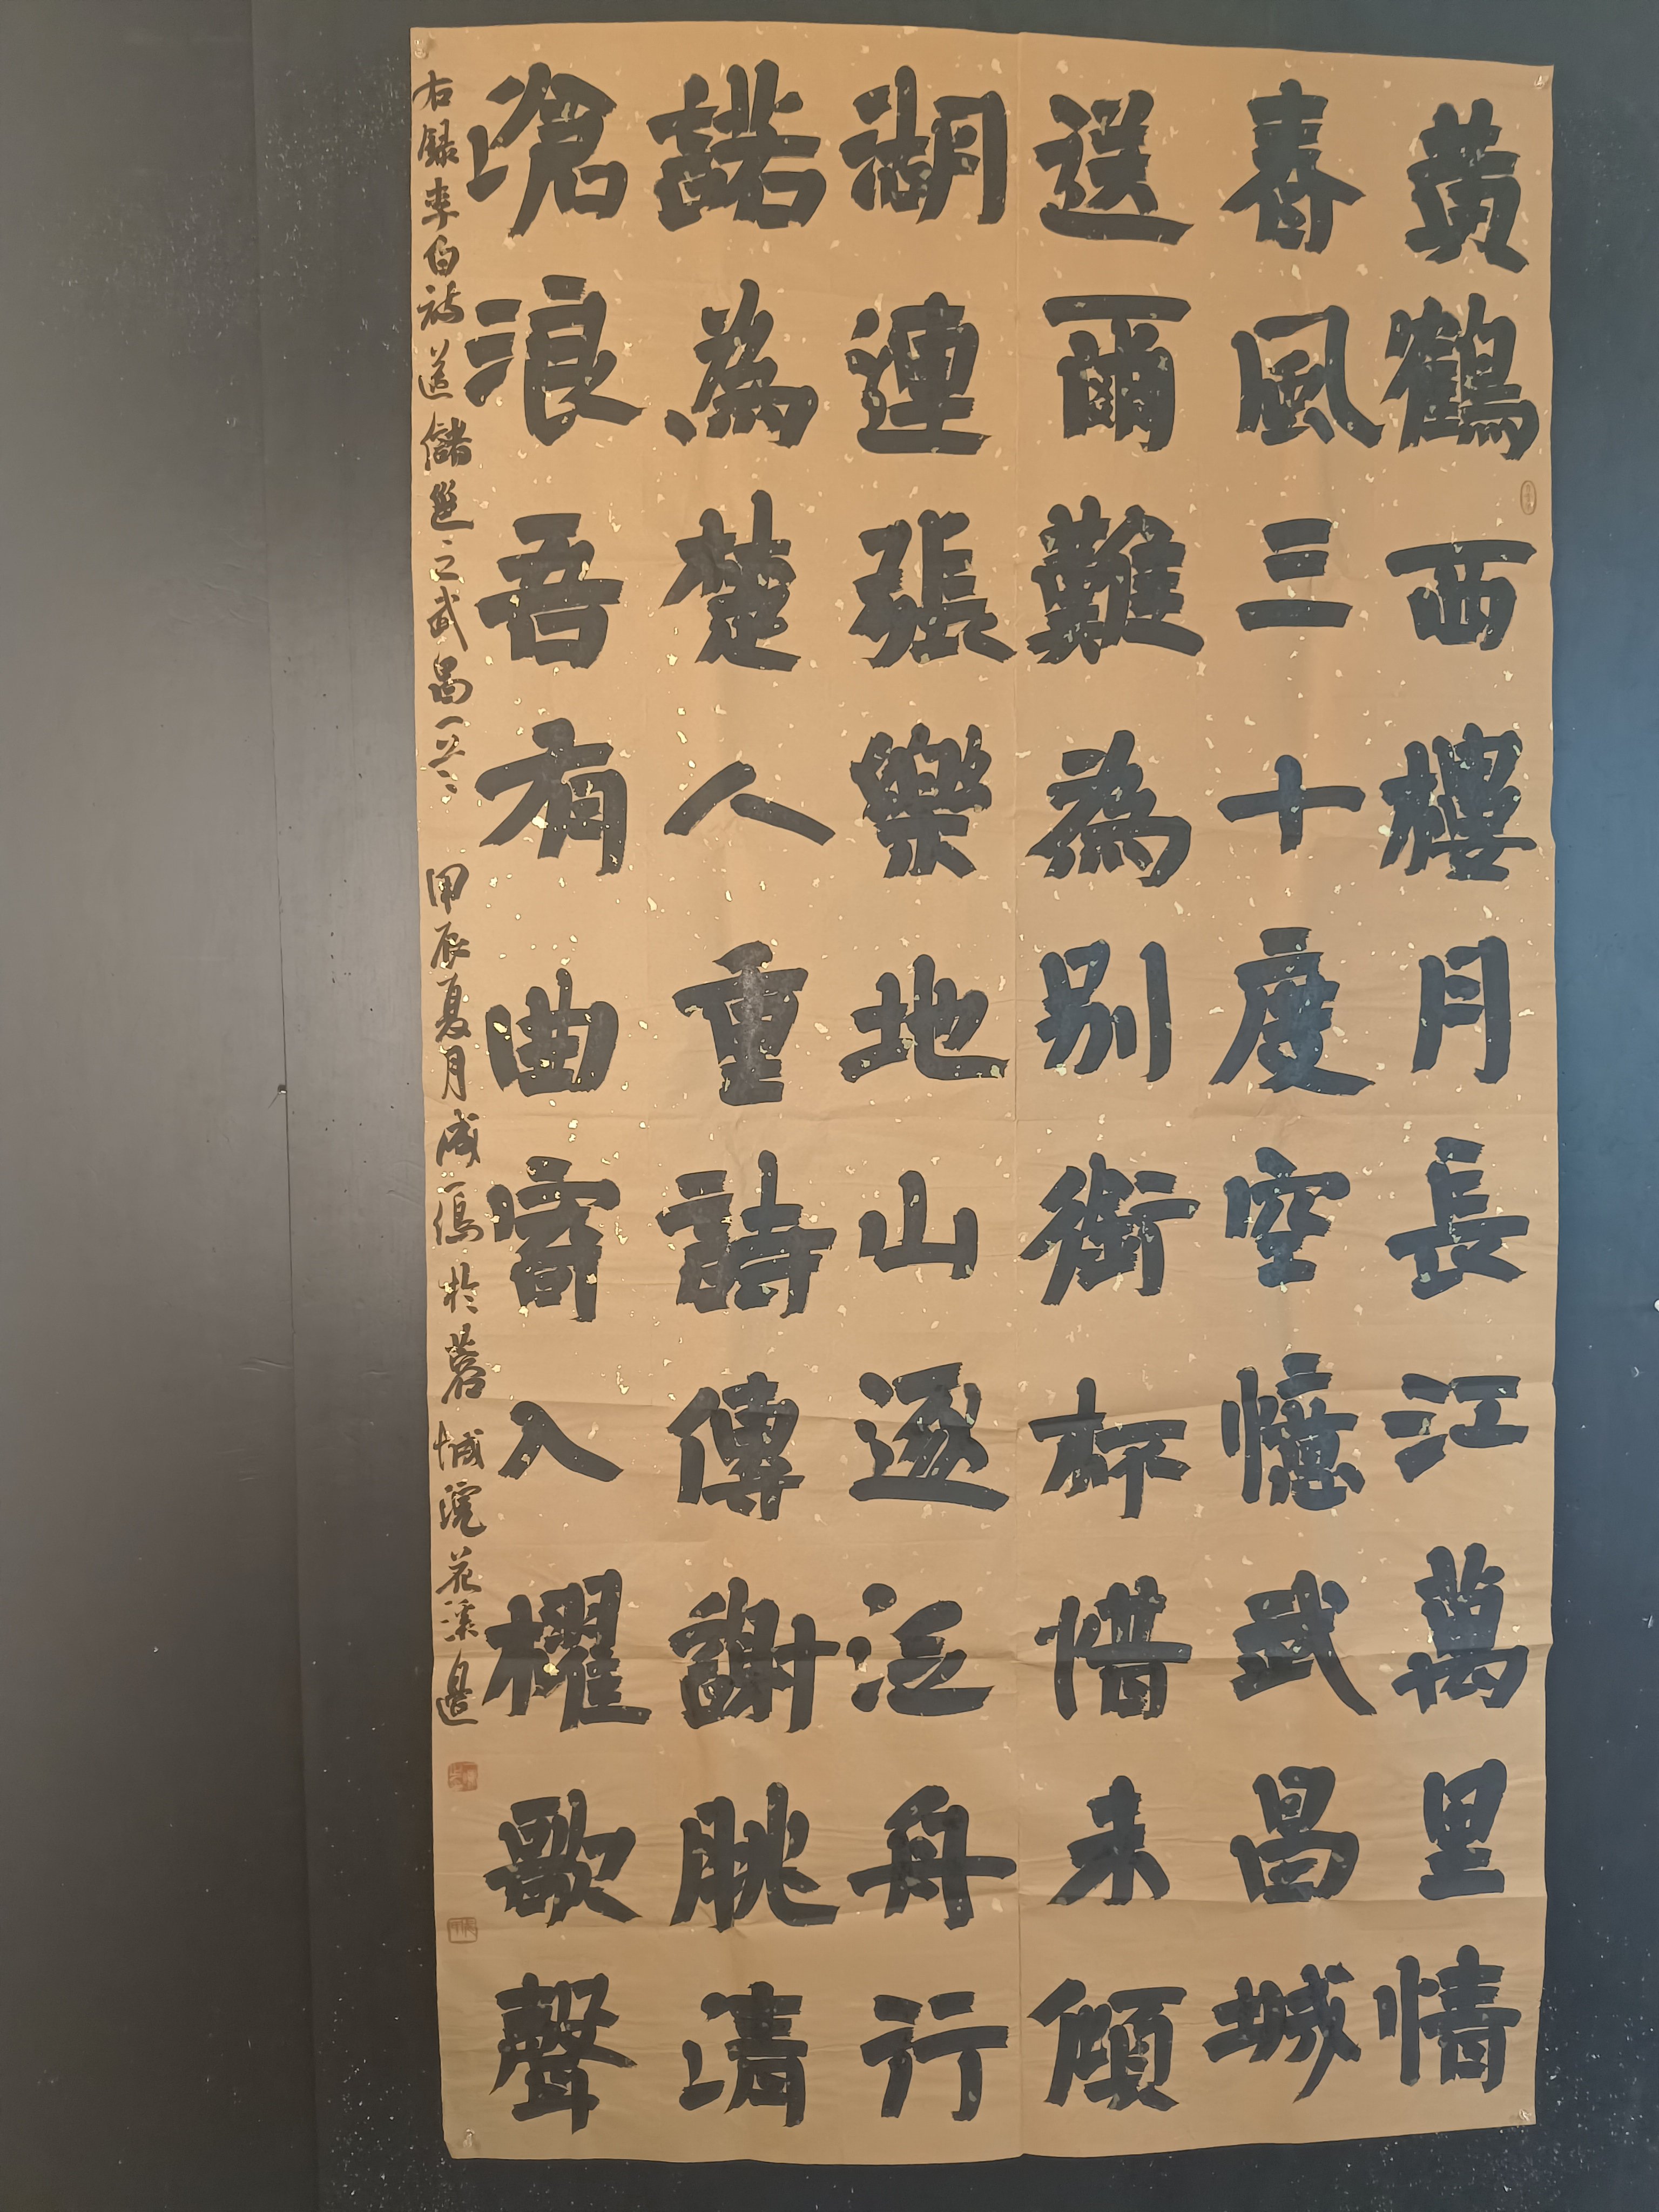 黄鶴西樓月長江萬里情
春風三十度空憶武昌城
送爾難為別銜杯惜未傾
湖連張樂地山逐泛舟行
諾為楚人重詩傳謝朓清
滄浪吾有曲寄入櫂歌聲
右録李白詩送儲邕之武昌一首 甲辰夏月成於蓉城浣花溪邊